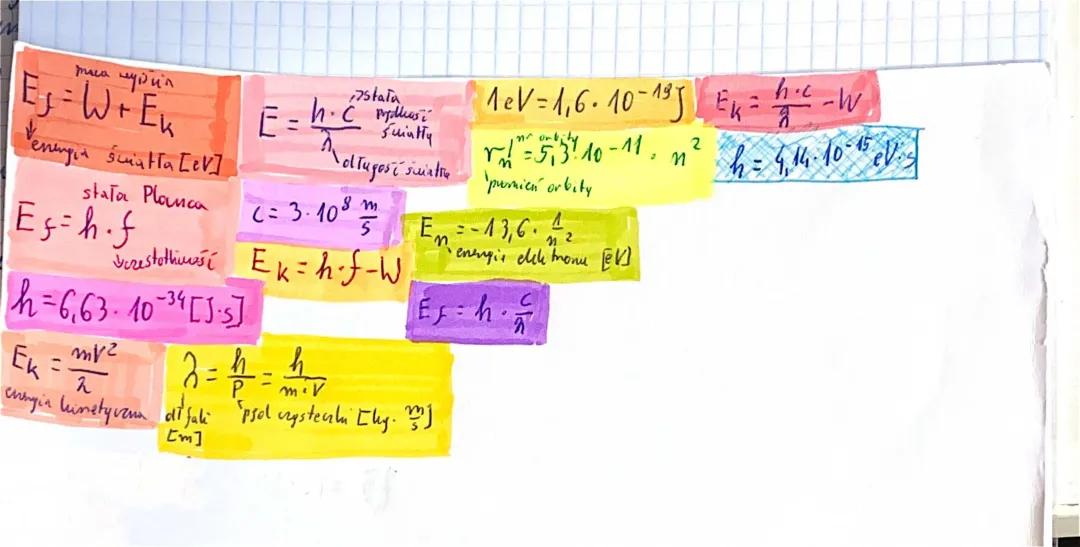 praca wyjścia
E_f = W + E_k
energia światła [eV]
E = h·c / λ
stała prędkość światła
długość światła
1 eV = 1,6 · 10^-19 J
E_k = h·c / λ - W
nr orbity
r_n = 5,3 · 10^-11 · n^2
promień orbity
h = 4,14 · 10^-15 eV·s
stała Plancka
E_f = h · f
częstotliwość
c = 3 · 10^8 m/s
E_k = h · f - W
E_n = -13,6 · 1/n^2
energia elektronu [eV]
h = 6,63 · 10^-34 [J·s]
E_f = h · c/λ
E_k = mV^2 / 2
energia kinetyczna
λ = h/p = h / m·V
dł fali
[m]
pęd cząsteczki [kg · m/s]